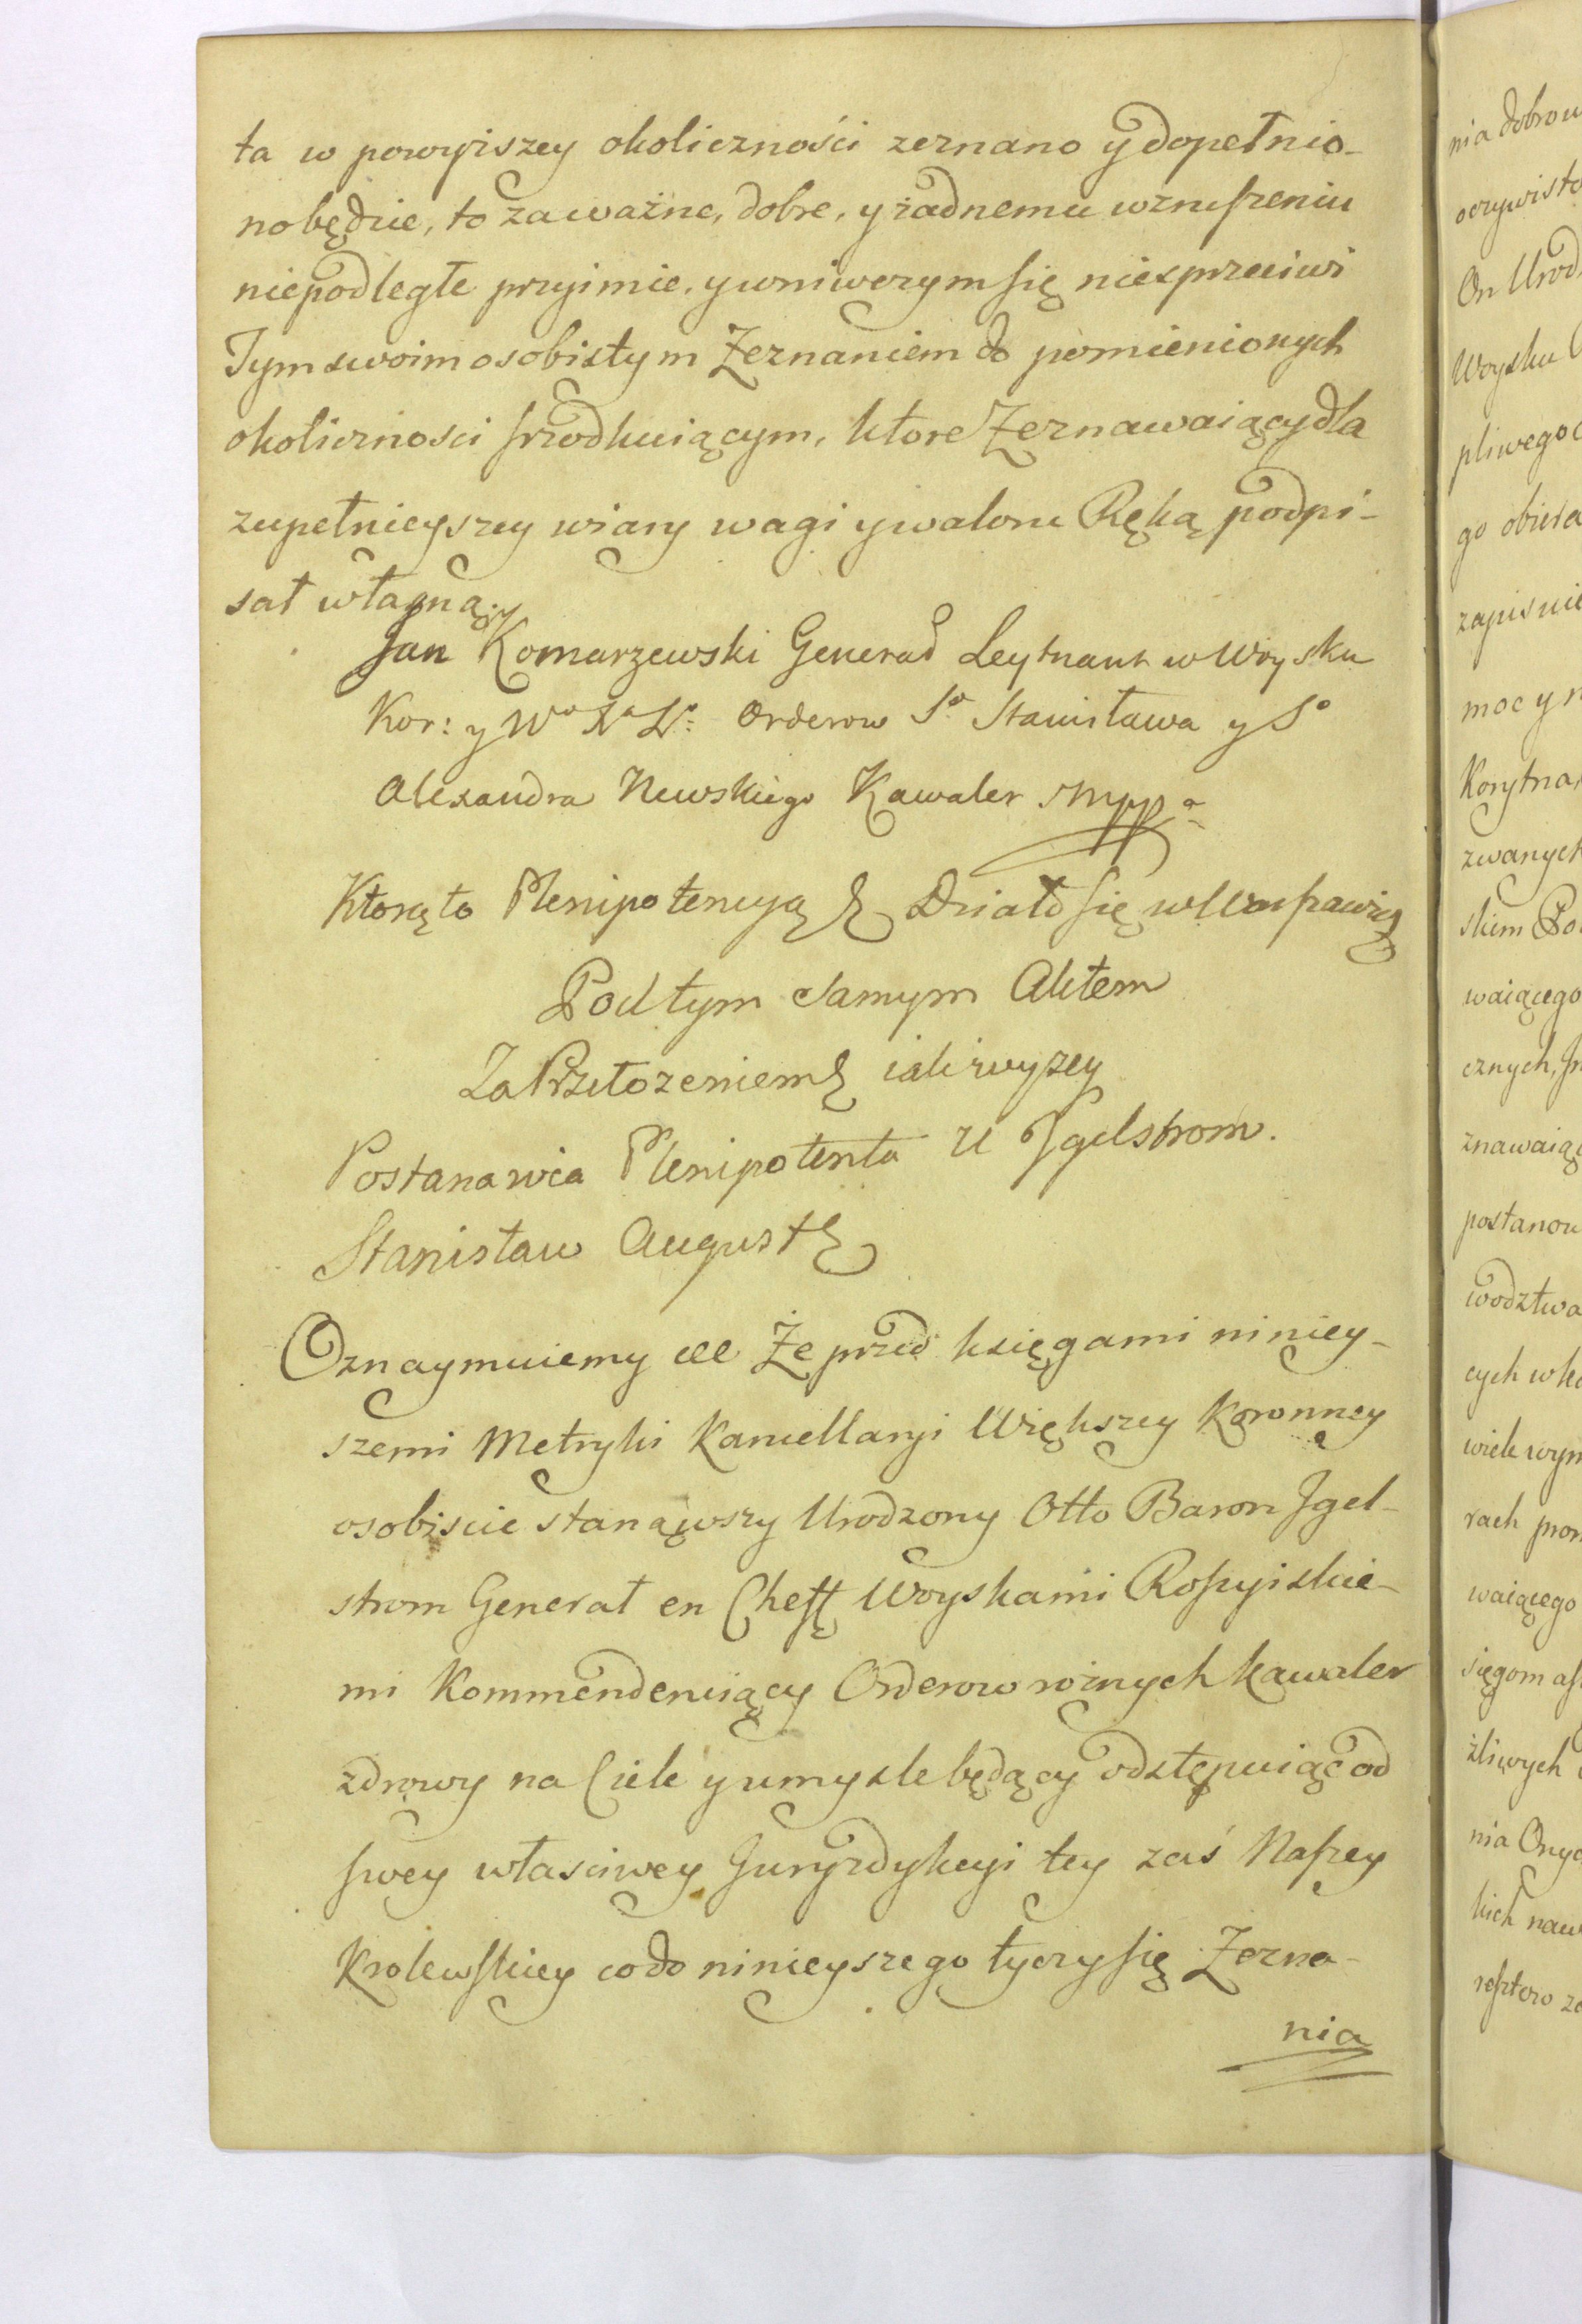 ta w powyższey okoliczności zeznano y dopełnio-
no będzie, to za ważne, dobre, y żadnemu wzruszeniu
niepodległe przyimie, y wniwczym się niesprzeciwi
Tym swoim osobistym Zeznaniem do pomienionych
okoliczności srzodkuiącym, ktore Zeznawaiący dla
zupełnieyszey wiary wagi y waloru Ręką podpi-
sał własną.
Jan Komarzewski Generał Leytnant w Woysku
Kor: y Wo Xa Lo: Orderow So Stanisława y So
Alexandra Newskiego Kawaler mppa
Ktorą to Plenipotencyą & Działo się w Warszawie
Pod tym samym Aktem
Za Przełozeniem & iak wyżey
Postanawia Plenipotenta U Jgelstrom.
Stanisław August &
Oznaymuiemy &c Że przed księgami niniey-
szemi Metryki Kancellaryi Większey Koronney
osobiscie stanąwszy Urodzony Otto Baron Jgel-
strom Generał en Cheff Woyskami Rossyiskie-
mi Kommenderuiący Orderow rożnych Kawaler
zdrowy na Ciele y umysle będący odstępuiąc od
swey własciwey Juryzdykcyi tey zaś Naszey
Krolewskiey co do ninieyszego tyczy się Zezna-
nia
nia dobrow
oczywisto
On Urod
Woysku
pliwego
go obiera
moc y
zwanych
skim
waiącego
cznych,
znawaiąc
postanow
wodztwa
cych
wiele wym
rach
waiącego
sięgom
żliwych
nia
kich naw